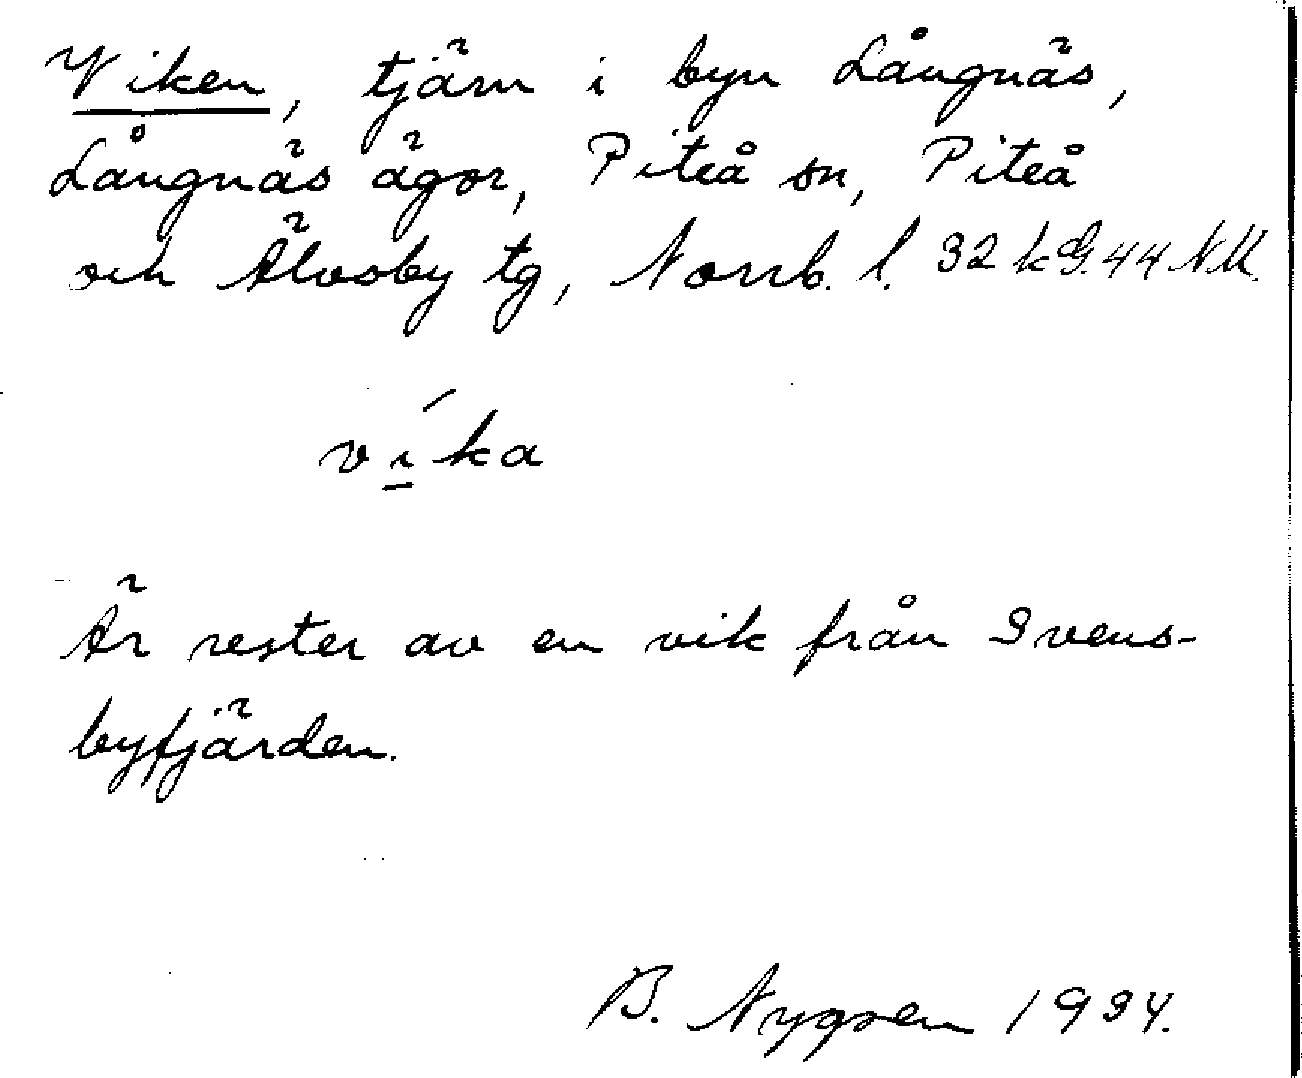 Viken, tjärn i byn Långnäs,
Långnäs ägor, Piteå sn, Piteå
och Älvsby tg, Norrb. l. 32 k G. 44 N.M.
víka
Är rester av en vik från Svens-
byfjärden.
B. Nygren 1934.